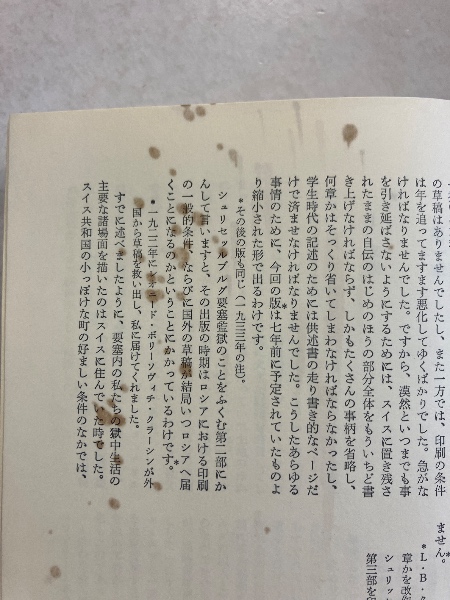 の草稿はありませんでしたし、また一方では、印刷の条件
は年を追ってますます悪化してゆくばかりでした。急がな
ければなりませんでした。ですから、漠然といつまでも事
を引き延ばさないようにするためには、スイスに置き残さ
れたままの自伝のはじめのほうの部分全体をもういちど書
き上げなければならず、しかもたくさんの事柄を省略し、
何章かはそっくり省いてしまわなければならなかったし、
学生時代の記述のためには供述書の走り書き的なページだ
けで済ませなければなりませんでした。こうしたあらゆる
事情のために、今回の版*は七年前に予定されていたものよ
り縮小された形で出るわけです。
*その後の版も同じ(一九三三年の注)。
シュリセッルブルグ要塞監獄のことをふくむ第二部にか
んして言いますと、その出版の時期はロシアにおける印刷
の一般的条件、ならびに国外の草稿が結局いつロシアへ届
くことになるのかということにかかっているわけです。*
*一九二二年にレオニード・ボリーソヴィチ・クラーシンが外
国から草稿を救い出し、私に届けてくれました。
すでに述べましたように、要塞内の私たちの獄中生活の
主要な諸場面を描いたのはスイスに住んでいた時でした。
スイス共和国の小っぽけな町の好ましい条件のなかでは、
ません。
*L・B・
章かを改
シュリッ
第三部を